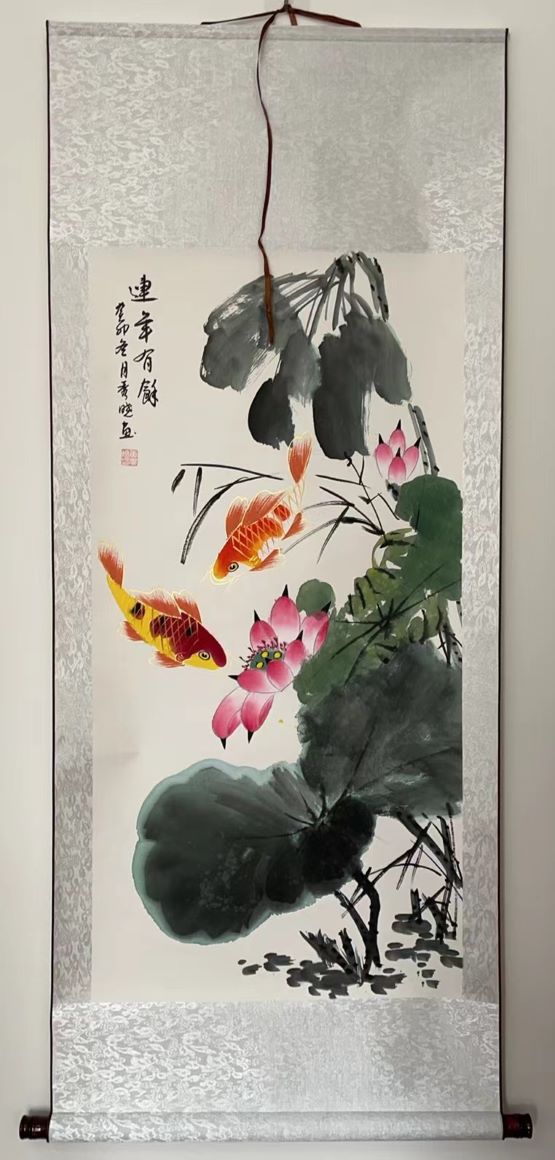 連年有餘
癸卯冬月秀曉画